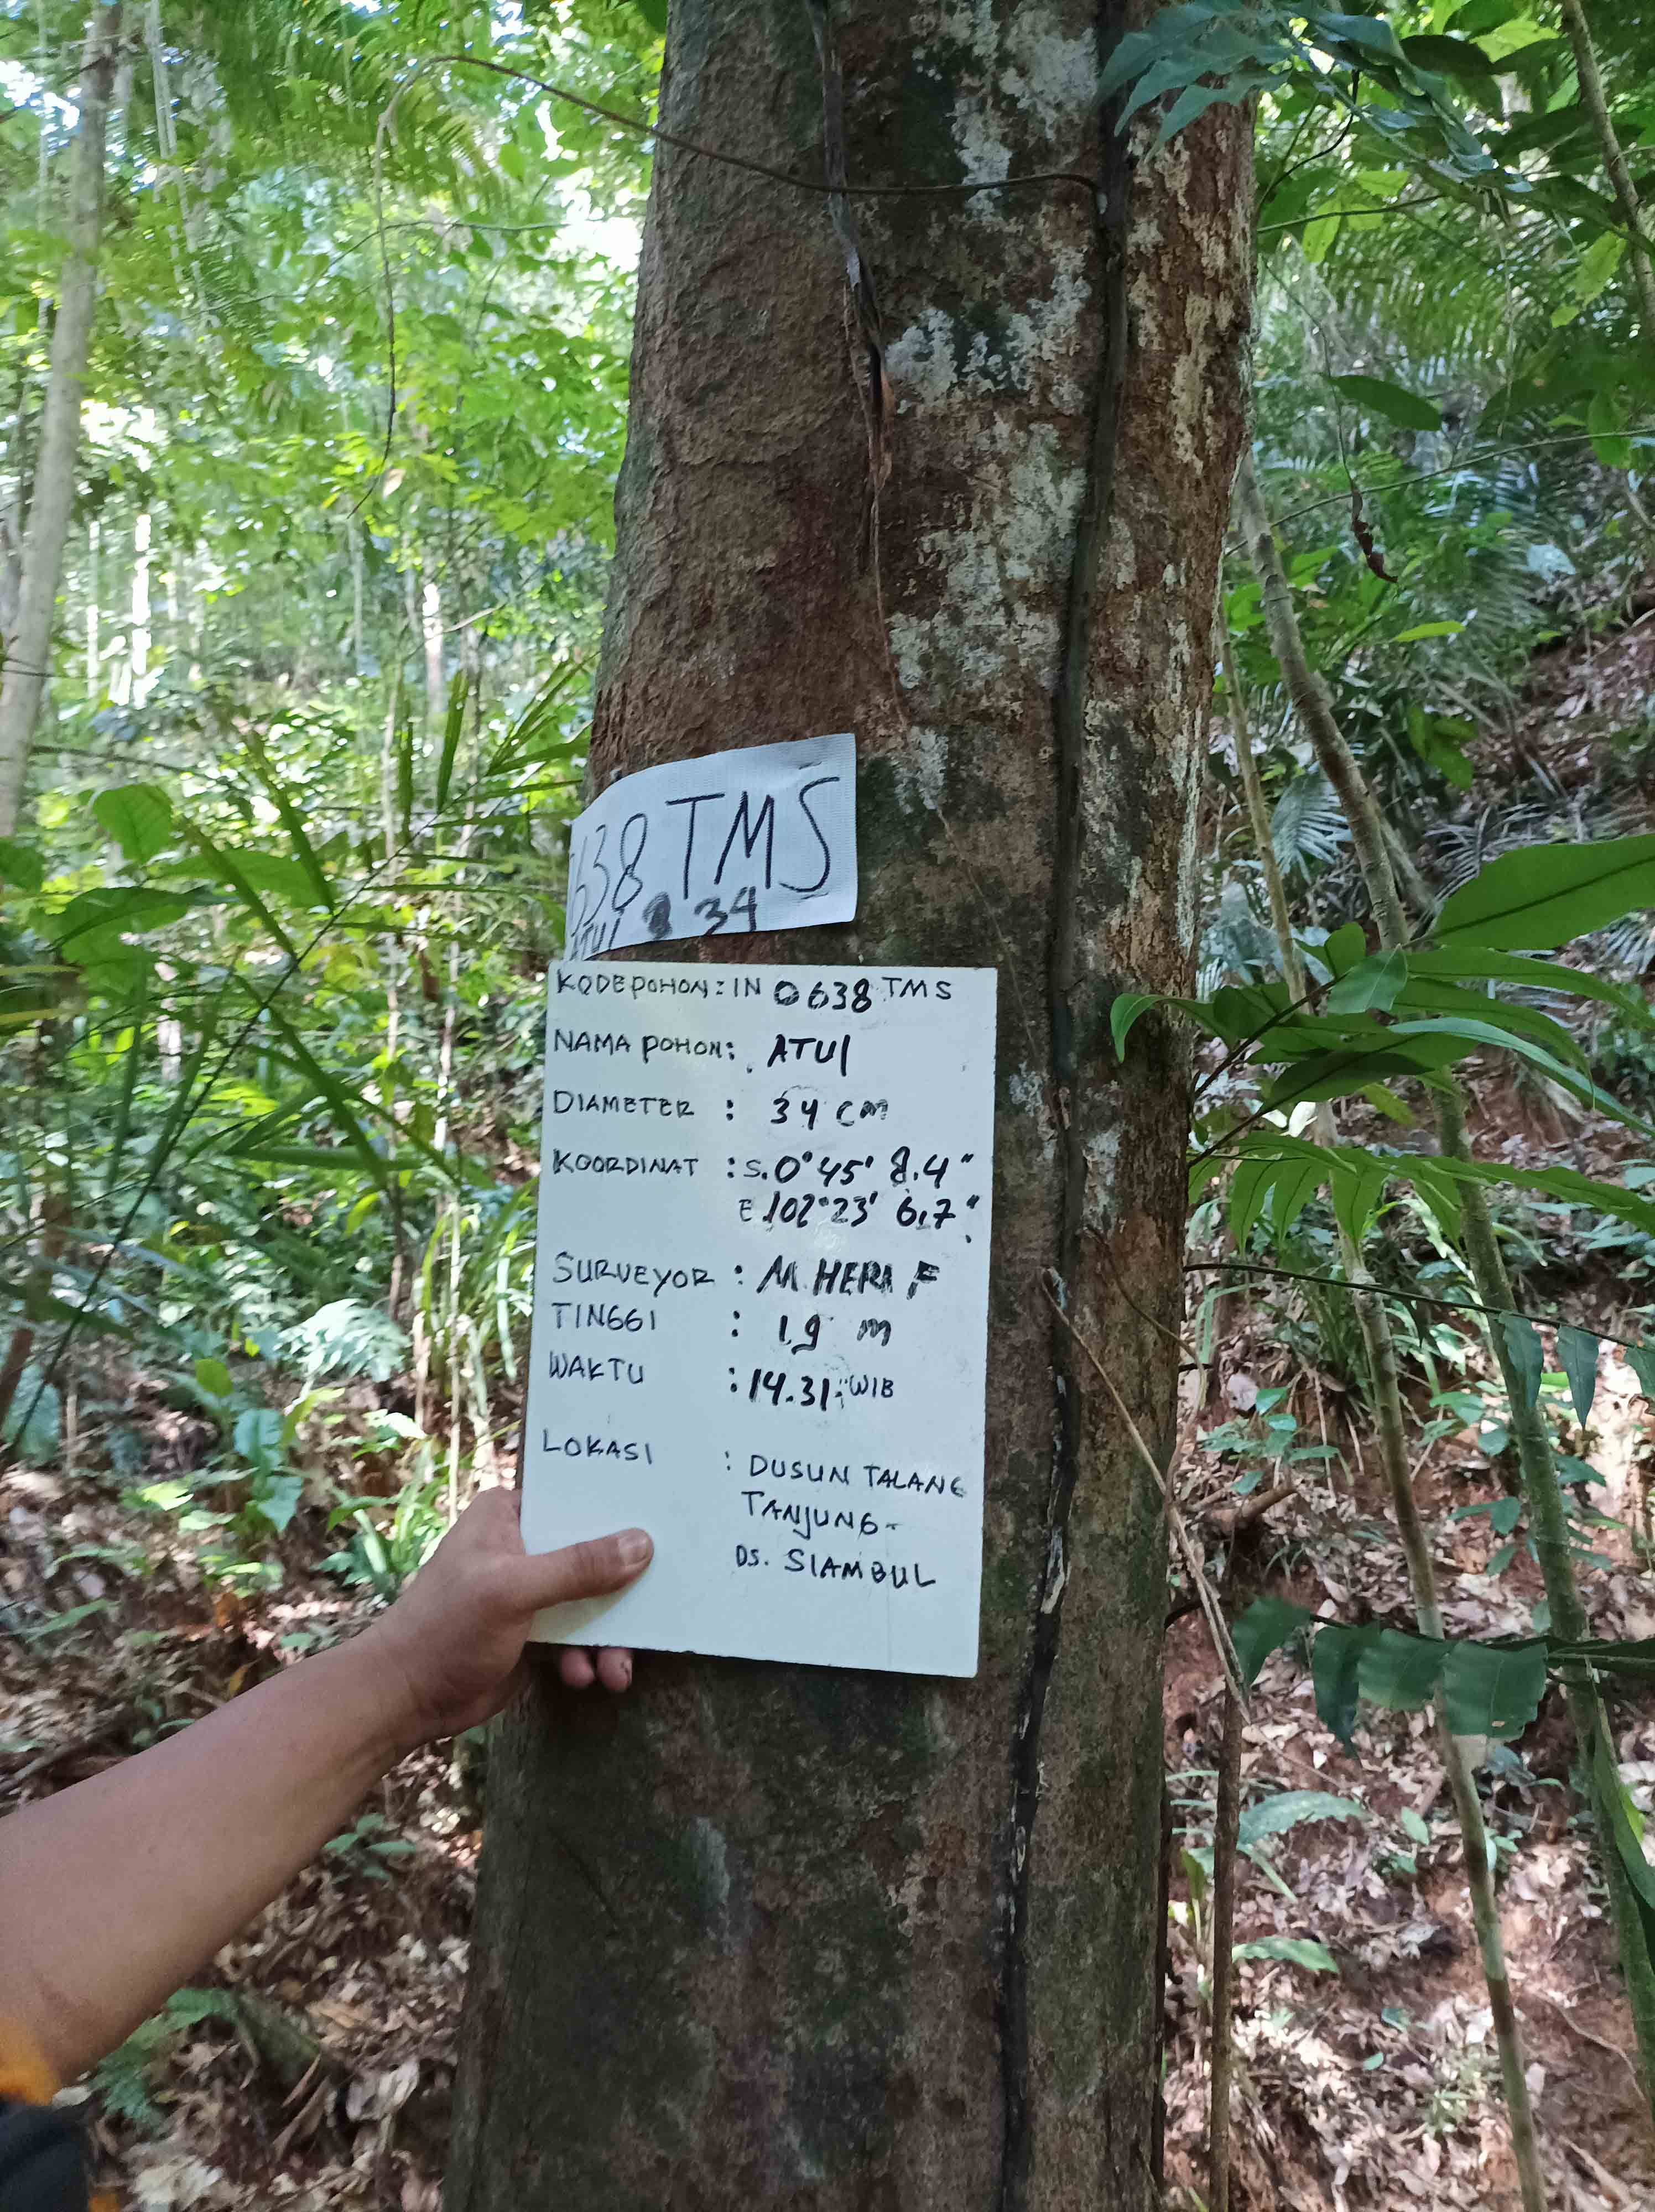 638 TMS
ATUI 34
KODE POHON : IN 0638 TMS
NAMA POHON : ATUI
DIAMETER : 34 cm
KOORDINAT : S. 0° 45' 8.4"
E 102° 23' 6,7"
SURVEYOR : M. HERI F
TINGGI : 19 m
WAKTU : 14.31 WIB
LOKASI : DUSUN TALANG
TANJUNG-
DS. SIAMBUL